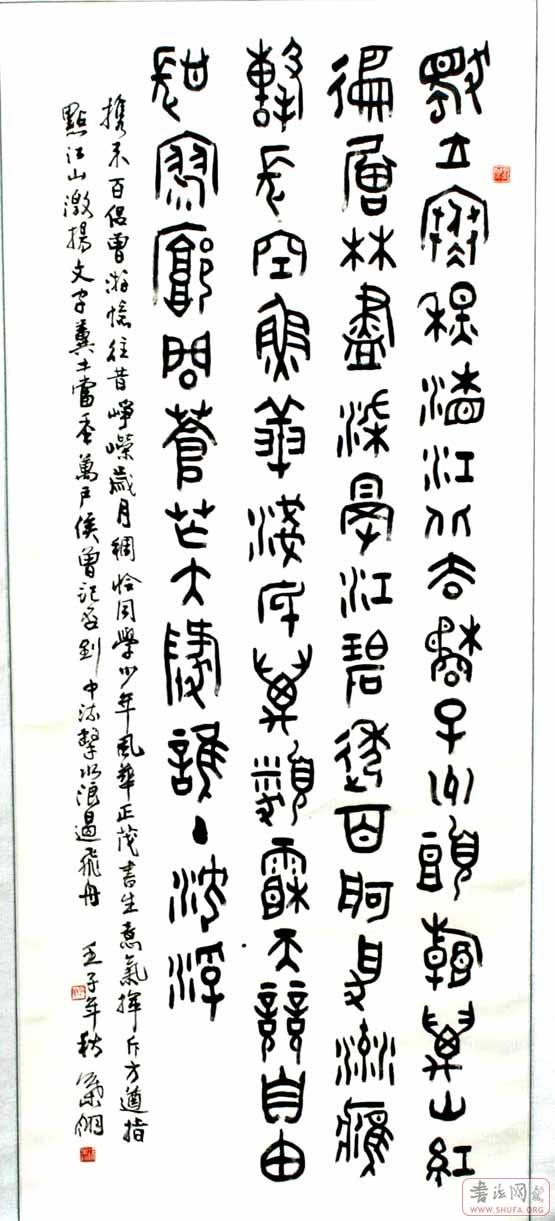 獨立寒秋湘江北去橘子洲頭看萬山紅
徧層林盡染曼江碧透百舸爭流鷹
擊長空魚翔淺底萬類霜天競自由
悵寥廓問蒼芒大地誰主沉浮
攜來百侶曾游憶往昔崢嶸歲月稠恰同學少年風華正茂書生意氣揮斥方遒指
點江山激揚文字糞土當年萬戶侯曾記否到中流擊水浪遏飛舟 壬子年秋
书法网
WWW.SHUFA.ORG